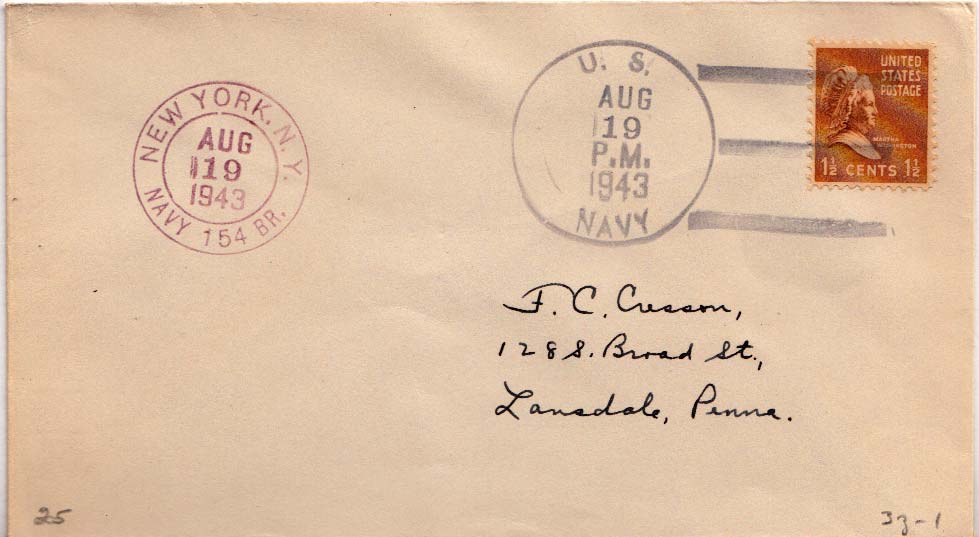 NEW YORK, N.Y.
AUG
19
1943
NAVY 154 BR.
U. S.
AUG
19
P.M.
1943
NAVY
UNITED
STATES
POSTAGE
MARTHA
WASHINGTON
1½ CENTS 1½
F. C. Cresson,
128 S. Broad St.,
Lansdale, Penna.
25
3z-1